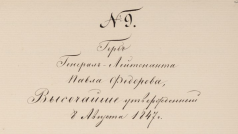 № 9.
Гербъ
Генералъ-Лейтенанта
Павла Федорова,
Высочайше утвержденный
8 Августа 1847 г.